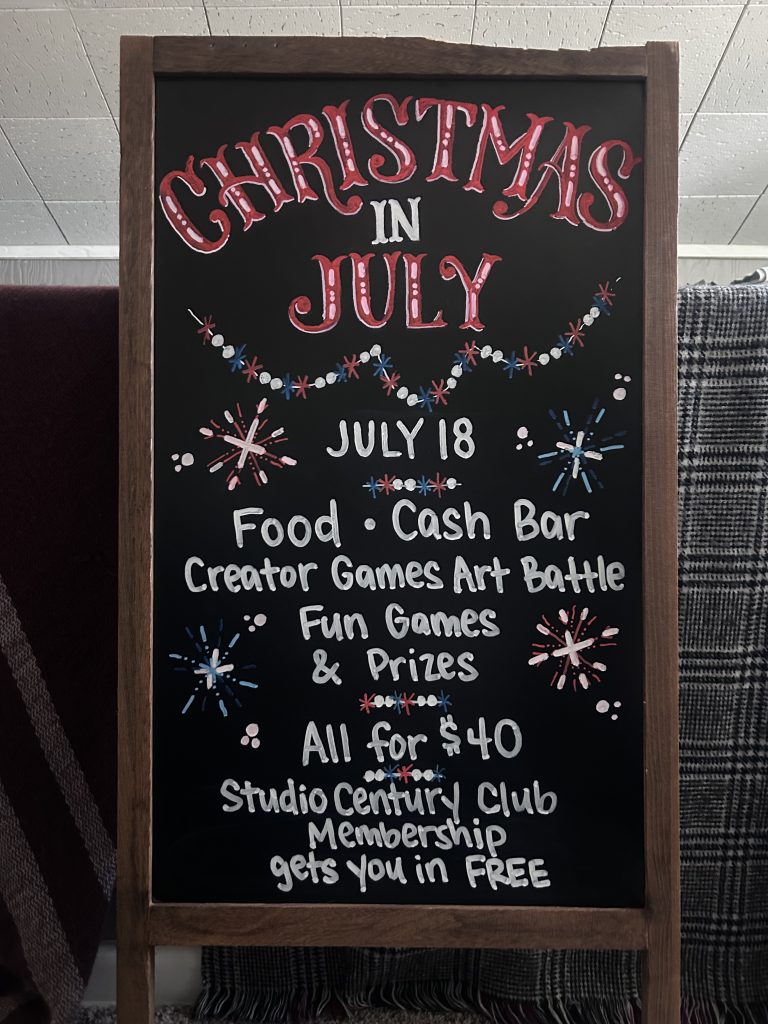 CHRISTMAS
IN
JULY
JULY 18
Food • Cash Bar
Creator Games Art Battle
Fun Games
& Prizes
All for $40
Studio Century Club
Membership
gets you in FREE